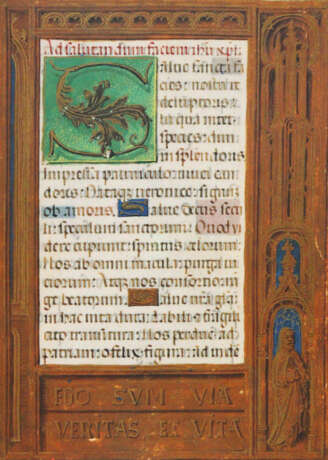 Ad salutandum faciem ihu xpi
Salue sancta fa
cies: nostri re
demptoris: In
qua nitet
species: diui
ni splendoris
Impressa panniculo: niuei can
doris: Dataque ueronice: signum
ob amoris. Salue decus secu
li: speculum sanctorum: Quod vi
dere cupiunt: spiritus celorum:
Nos ab omni macula: purga vi
ciorum: Atque nos consortio: iun
ge beatorum. Salue nostra gloria:
in hac vita dura: Labili et fragili:
cito transitura: Nos perduc ad
patriam: o felix figura: ad uide
EGO SVM VIA
VERITAS ET VITA